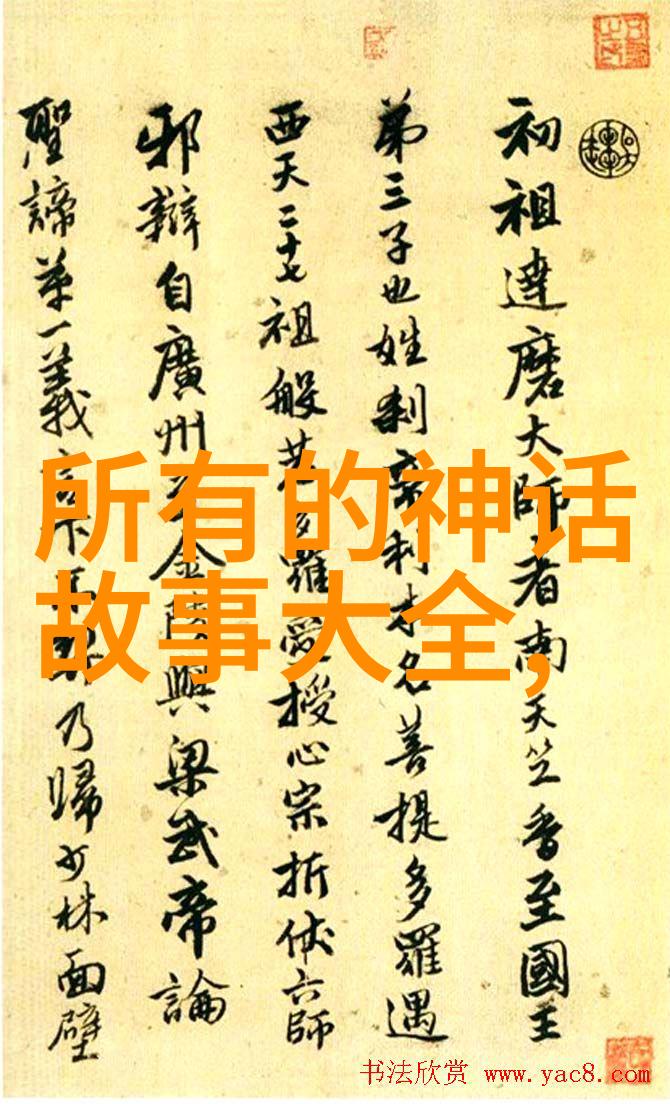 初祖達磨大師者南天竺香至國王
第三子也姓刹帝利本名菩提多羅遇
西天二十七祖般若多羅授心宗折伏六師
邪辯自廣州至金陵與梁武帝論
聖諦第一義乃歸少林面壁
所有的神话
故事大全,
书法欣赏 www.yac8.com